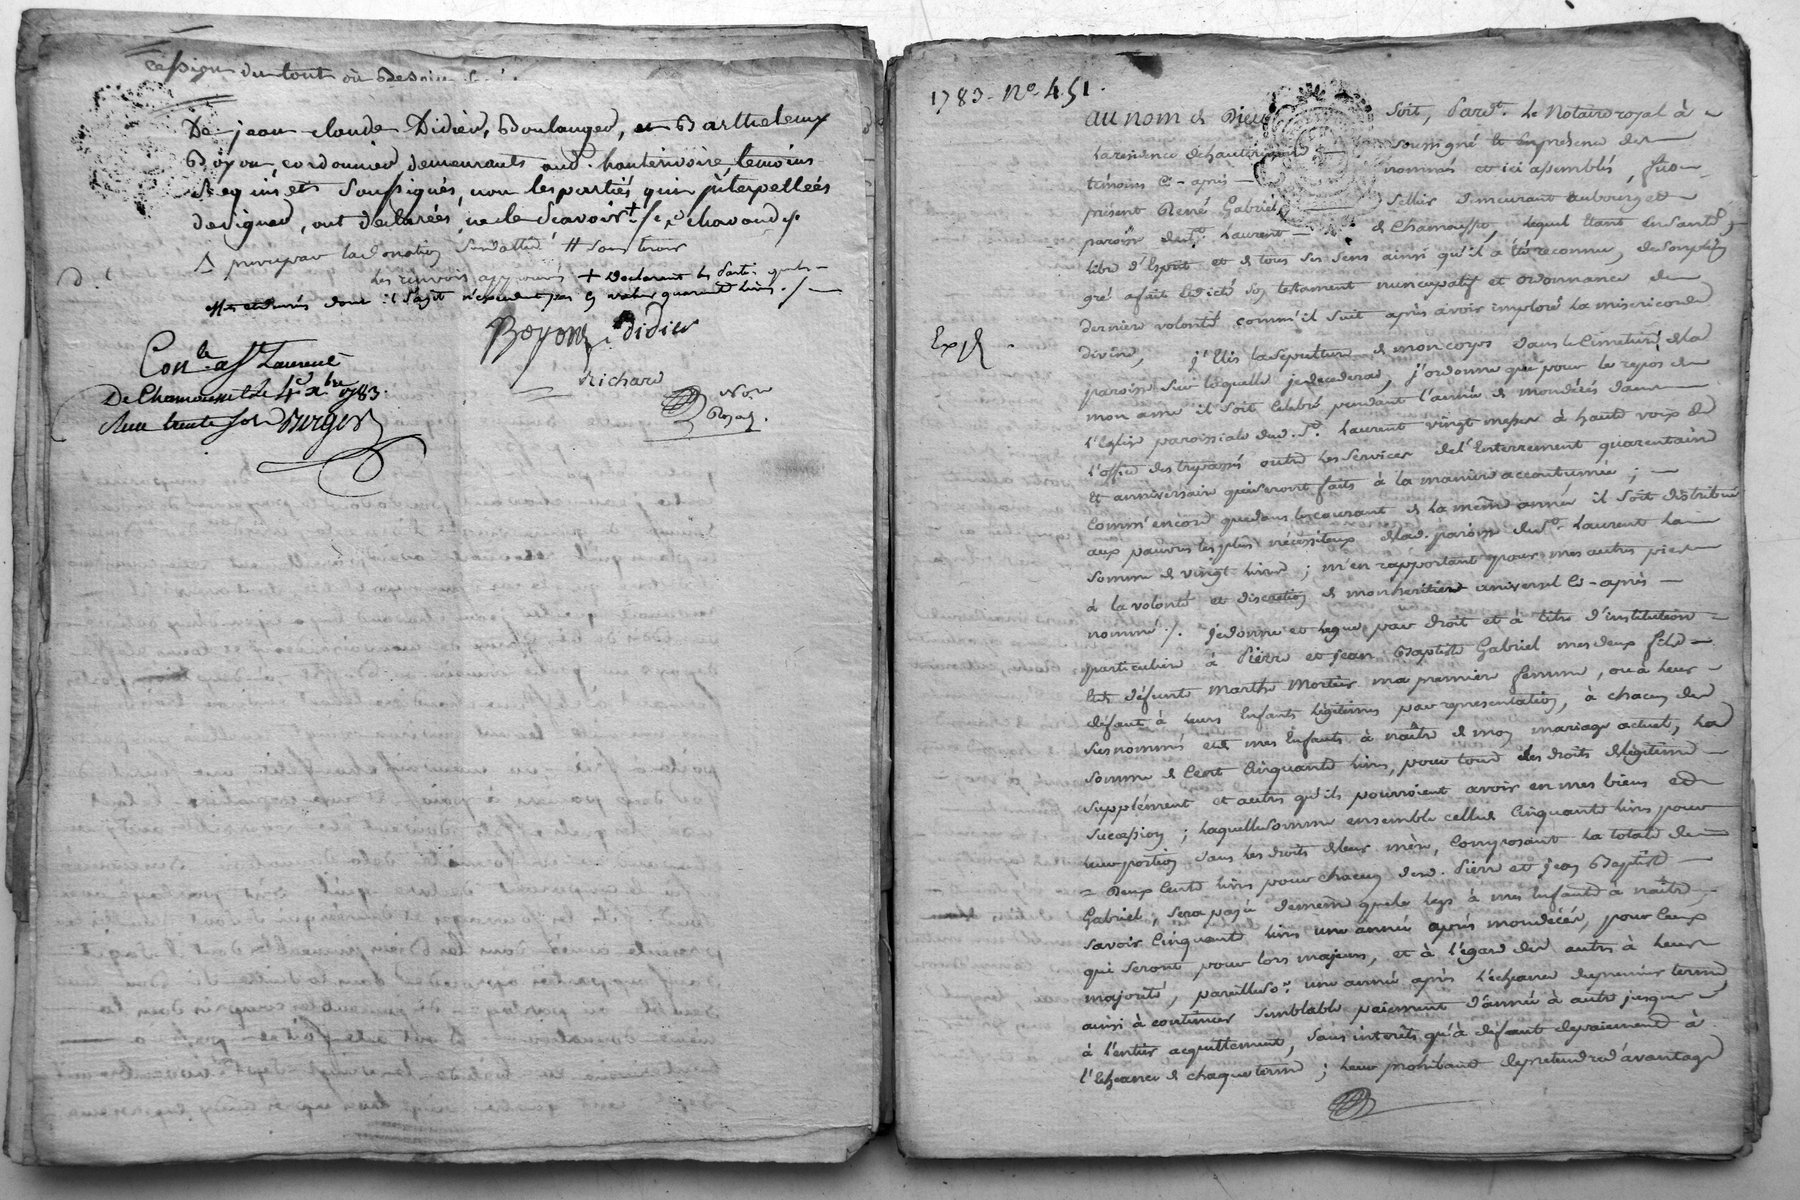 cession du tout où Besoin sera
De jean claude Didier, Boulanger, et Barthelemy
Boyon, cordonnier demeurants aud. hauterivoire temoins
Requis et Soussignés, non les parties qui interpellées
de signer, ont declarées ne le Scavoir
la donation
les renvois approuvés + Declarant les Parties que les
effets et denrés dont il s'agit n'excedent pas la valeur quarante livres ./.
Boyon Didier
Richard
Not.re
Royal.
Con.lé a S.t Laurent
De Chamousset le 4e Xbre 1783.
Reçu trente sols Berger
1783. No. 451.
Exp.
au nom de Dieu Soit, Pard.t Le Notaire royal à
la residence de hauterivoire soussigné et en présence des
témoins ci-après nommés et ici assemblés, fut
présent René Gabriel Sellier demeurant au bourg et
paroisse de S.t Laurent de Chamousset, lequel étant en santé,
libre d'Esprit et de tous ses sens ainsi qu'il a été reconnu, de son plein
gré a fait et dicté son testament nuncupatif et ordonnance de
derniere volonté comm'il suit après avoir imploré la misericorde
divine, j'Elis la sépulture de mon corps dans le Cimetiere de la
paroisse sur laquelle je decederai, j'ordonne que pour le repos de
mon ame il soit celebré pendant l'année de mon décès dans
l'Eglise paroissiale dud. S.t Laurent vingt messes à haute voix de
l'office des trepassés outre les Services de l'Enterrement quarantaine
et anniversaire qui seront faits à la maniere accoutumée ;
comm'encore que dans le courant de la même année il soit distribué
aux pauvres les plus nécessiteux de lad. paroisse de S.t Laurent la
somme de vingt livres ; m'en rapportant pour mes autres pies
à la volonté et discretion de mon héritiere universel ci-après
nommé ./. je donne et legue par droit et à titre d'institution
particuliere à Pierre et jean Baptiste Gabriel mes deux fils
et de défunte Marthe Mortier ma premiere femme, ou à leur
défaut à leurs Enfants légitimes par representation, à chacun des
susnommés et de mes Enfants à naître de mon mariage actuel, la
somme de Cent Cinquante livres, pour tous les droits de légitime
supplément et autres qu'ils pourroient avoir en mes biens et
succession ; laquelle somme ensemble celle de Cinquante livres pour
leur portion dans les droits de leur mère, composant la totale de
Deux Cents livres pour chacun desd. Pierre et jean Baptiste
Gabriel, sera payé de meme que le legs à mes Enfants à naître,
savoir Cinquante livres une année après mon décès, pour ceux
qui seront pour lors majeurs, et à l'égard des autres à leur
majorité, pareille so.e une année après l'échéance du premier terme
ainsi à continuer semblable paiement d'année à autre jusques
à l'entier acquittement, sans interêts qu'à défaut de paiement à
l'échéance de chaque terme ; leur prohibant de pretendre d'avantage